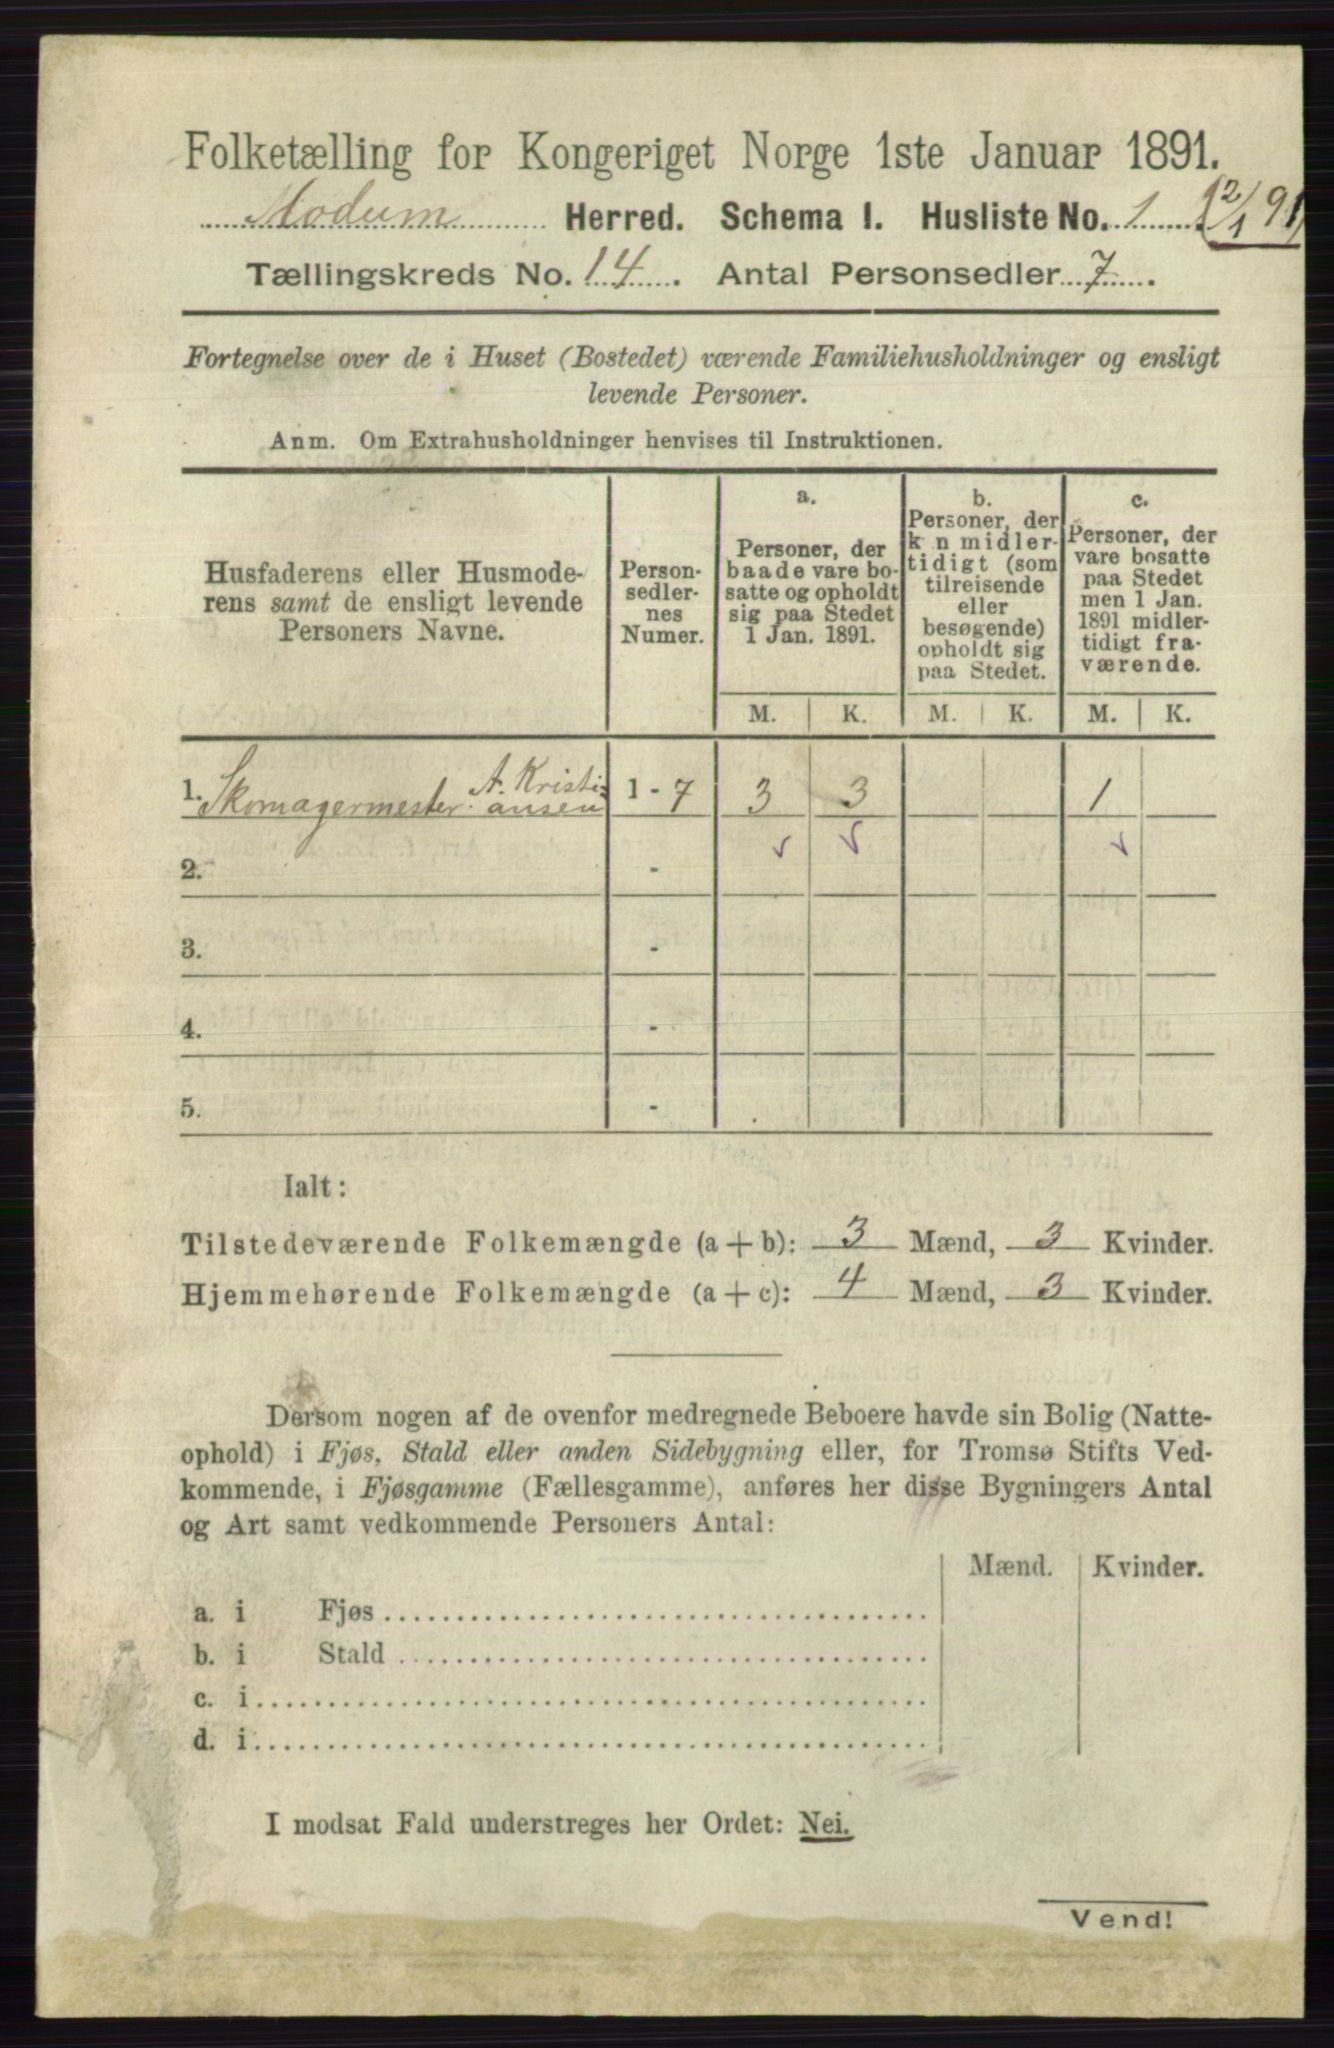 Folketælling for Kongeriget Norge 1ste Januar 1891.
Modum Herred. Schema I. Husliste No. 1 12/1 91
Tællingskreds No. 14. Antal Personsedler 7.
Fortegnelse over de i Huset (Bostedet) værende Familiehusholdninger og ensligt
levende Personer.
Anm. Om Extrahusholdninger henvises til Instruktionen.
Husfaderens eller Husmode-
rens samt de ensligt levende
Personers Navne.
Person-
sedler-
nes
Numer.
a.
Personer, der
baade vare bo-
satte og opholdt
sig paa Stedet
1 Jan. 1891.
b.
Personer, der
k n midler-
tidigt (som
tilreisende
eller
besøgende)
opholdt sig
paa Stedet.
c.
Personer, der
vare bosatte
paa Stedet
men 1 Jan.
1891 midler-
tidigt fra-
værende.
M. K. M. K. M. K.
1. Skomagermester A. Kristi-
ansen 1 - 7 3 3 1
2. -
3. -
4. -
5. -
Ialt:
Tilstedeværende Folkemængde (a + b): 3 Mænd, 3 Kvinder.
Hjemmehørende Folkemængde (a + c): 4 Mænd, 3 Kvinder.
Dersom nogen af de ovenfor medregnede Beboere havde sin Bolig (Natte-
ophold) i Fjøs, Stald eller anden Sidebygning eller, for Tromsø Stifts Ved-
kommende, i Fjøsgamme (Fællesgamme), anføres her disse Bygningers Antal
og Art samt vedkommende Personers Antal:
Mænd. Kvinder.
a. i Fjøs
b. i Stald
c. i
d. i
I modsat Fald understreges her Ordet: Nei.
Vend!